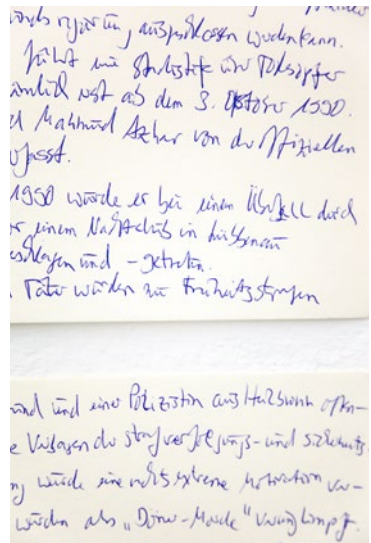 ausgeschlossen werden kann.
führt eine Statistik über Todesopfer
erst ab dem 3. Oktober 1990.
Mahmud Azhar von der offiziellen
1990 wurde er bei einem Überfall durch
einem Nachtclub in Lübbenau
und -getreten.
Täter wurden zu Freiheitsstrafen
und einer Polizistin aus Heilbronn offen-
Versagen der Strafverfolgungs- und Sicherheits-
wurde eine rechtsextreme Motivation ver-
wurden als „Döner-Morde" verunglimpft.